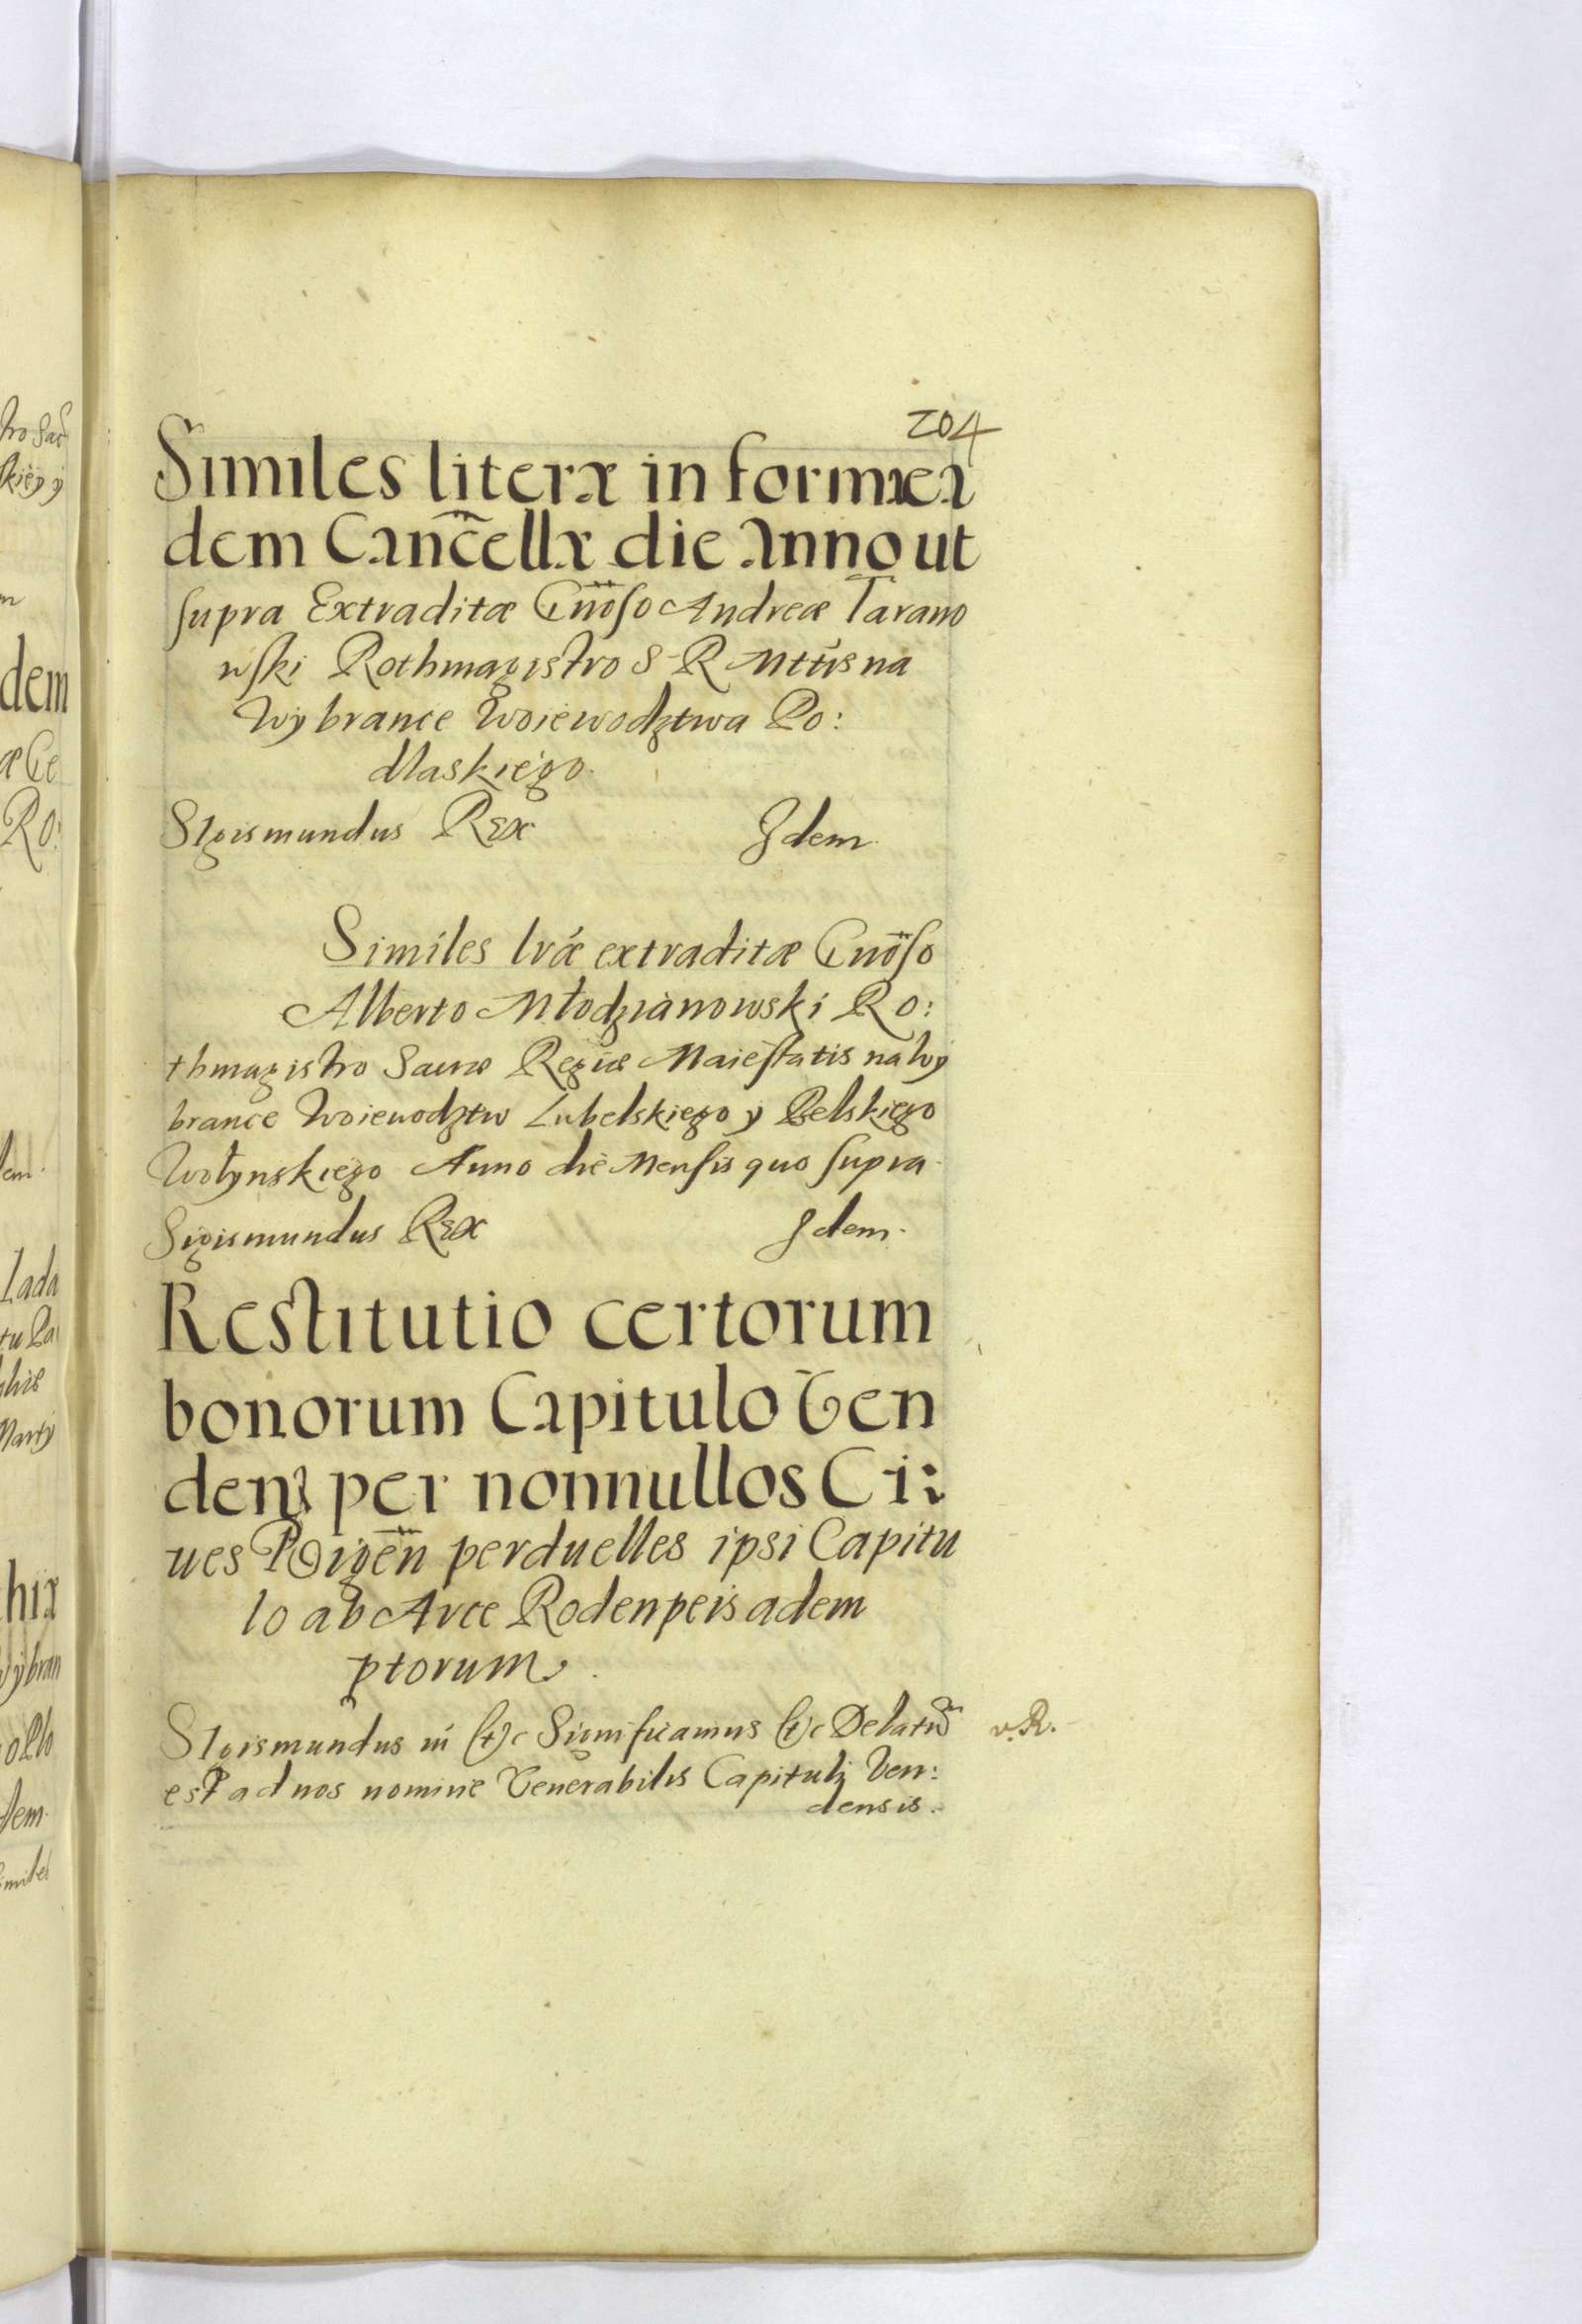 204
Similes literæ in formæ ea
dem Canc̃ellæ die Anno ut
supra Extraditæ Gnõso Andreæ Tarano
wski Rothmagistro S R Mttis na
Wybrance Woiewodztwa Po:
dlaskiego.
Sigismundus Rex Idem
Similes lræ extraditæ Gnõso
Alberto Młodzianowski Ro:
thmagistro Sacræ Regiæ Maiestatis na Wy
brance Woiewodztw Lubelskiego y Belskiego
Wołynskiego Anno die Mensis quo supra
Sigismundus Rex Idem.
Restitutio certorum
bonorum Capitulo Ven
dens per nonnullos Ci:
ues Rigeñ perduelles ipsi Capitu
lo ab Arce Rodenpeis adem
ptorum.
Sigismundus III (t)c Significamus (t)c Delatũ v.R.
est ad nos nomine Venerabilis Capituli Ven:
densis.